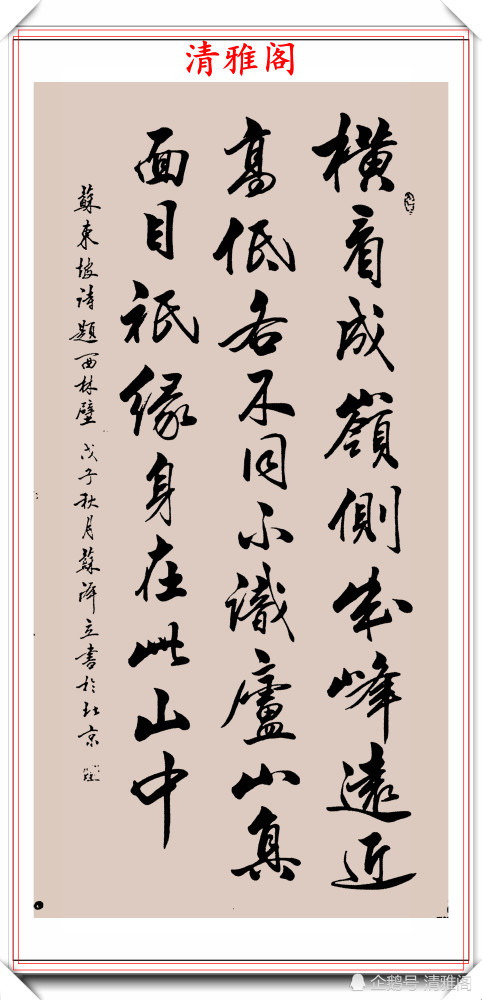 清雅阁
橫看成嶺側成峰遠近
高低各不同不識廬山真
面目祇緣身在此山中
蘇東坡詩題西林壁 戊子秋月蘇澤立書於北京
企鹅号 清雅阁